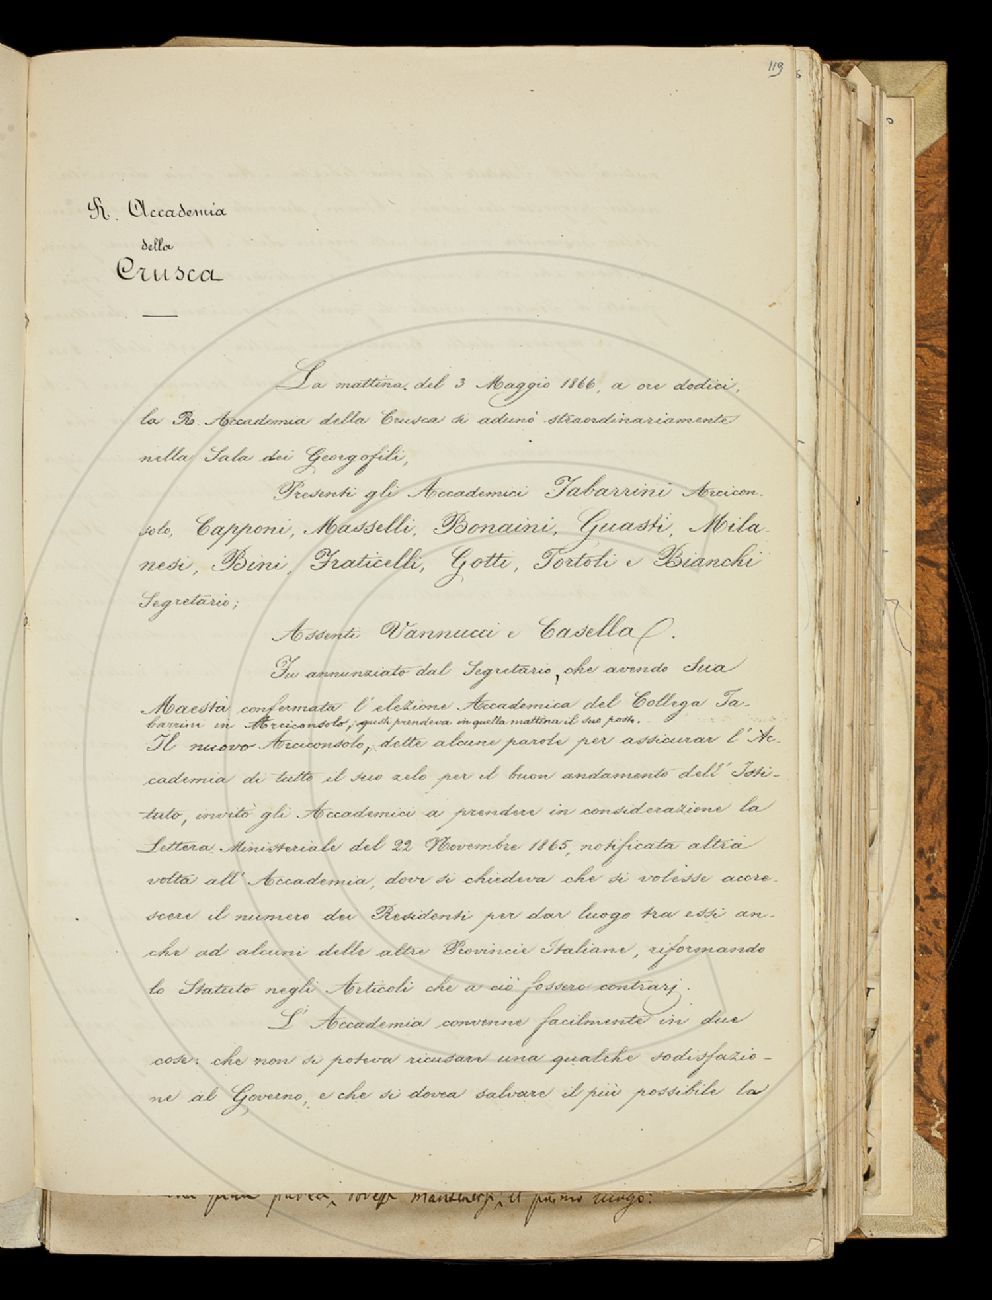 119
R. Accademia
della
Crusca
La mattina del 3 Maggio 1866, a ore dodici,
la R. Accademia della Crusca si adunò straordinariamente
nella Sala dei Georgofili,
Presenti gli Accademici Tabarrini Arcicon-
solo, Capponi, Masselli, Bonaini, Guasti, Mila-
nesi, Bini, Fraticelli, Gotti, Tortoli e Bianchi
Segretario;
Assenti Vannucci e Casella.
Fu annunziato dal Segretario, che avendo Sua
Maestà confermata l'elezione Accademica del Collega Ta-
barrini in Arciconsolo, questi prendeva in quella mattina il suo posto.
Il nuovo Arciconsolo, dette alcune parole per assicurar l'Ac-
cademia di tutto il suo zelo per il buon andamento dell'Isti-
tuto, invitò gli Accademici a prendere in considerazione la
Lettera Ministeriale del 22 Novembre 1865, notificata altra
volta all'Accademia, dove si chiedeva che si volesse accre-
scere il numero dei Residenti per dar luogo tra essi an-
che ad alcuni delle altre Provincie Italiane, riformando
lo Statuto negli Articoli che a ciò fossero contrarj.
L'Accademia convenne facilmente in due
cose: che non si poteva ricusare una qualche sodisfazio-
ne al Governo, e che si dovea salvare il più possibile la
il primo luogo: